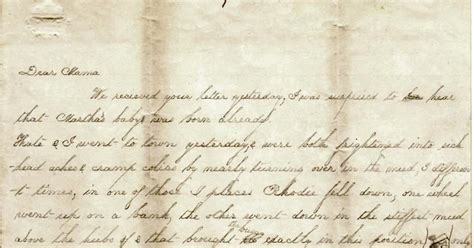 Dear Mama
We received your letter yesterday, I was surprised to hear
that Martha's baby was born already.
Kate & I went to town yesterday, & were both frightened into sick
head aches & cramp colics by nearly turning over in the mud, 3 differen-
t times, in one of those places Rhodie fell down, one wheel
went up on a bank, the other went down in the stiffest mud
above the hubs & that brought the buggy exactly in this position, & one